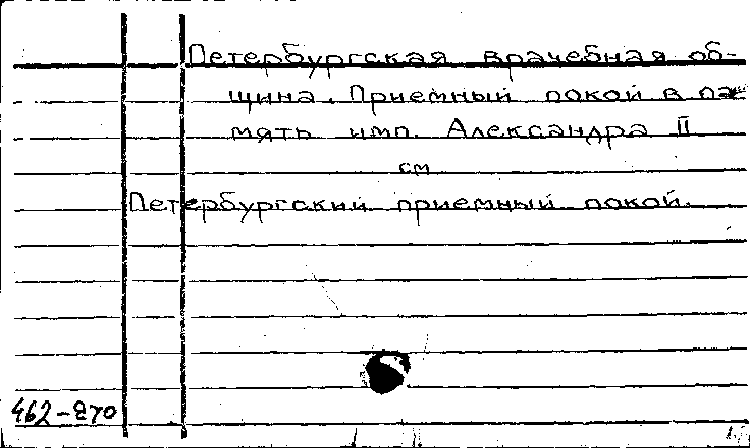 Петербургская врачебная об-
щина. Приемный покой в па-
мять имп. Александра II
см
Петербургский приемный покой.
462-870